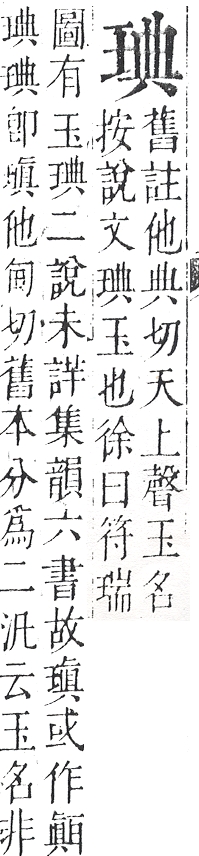 琠
舊註他典切天上聲玉名
按說文琠玉也徐曰符瑞
圖有玉琠二說未詳集韻六書故瑱或作顚
琠琠卽瑱他甸切舊本分爲二汎云玉名非